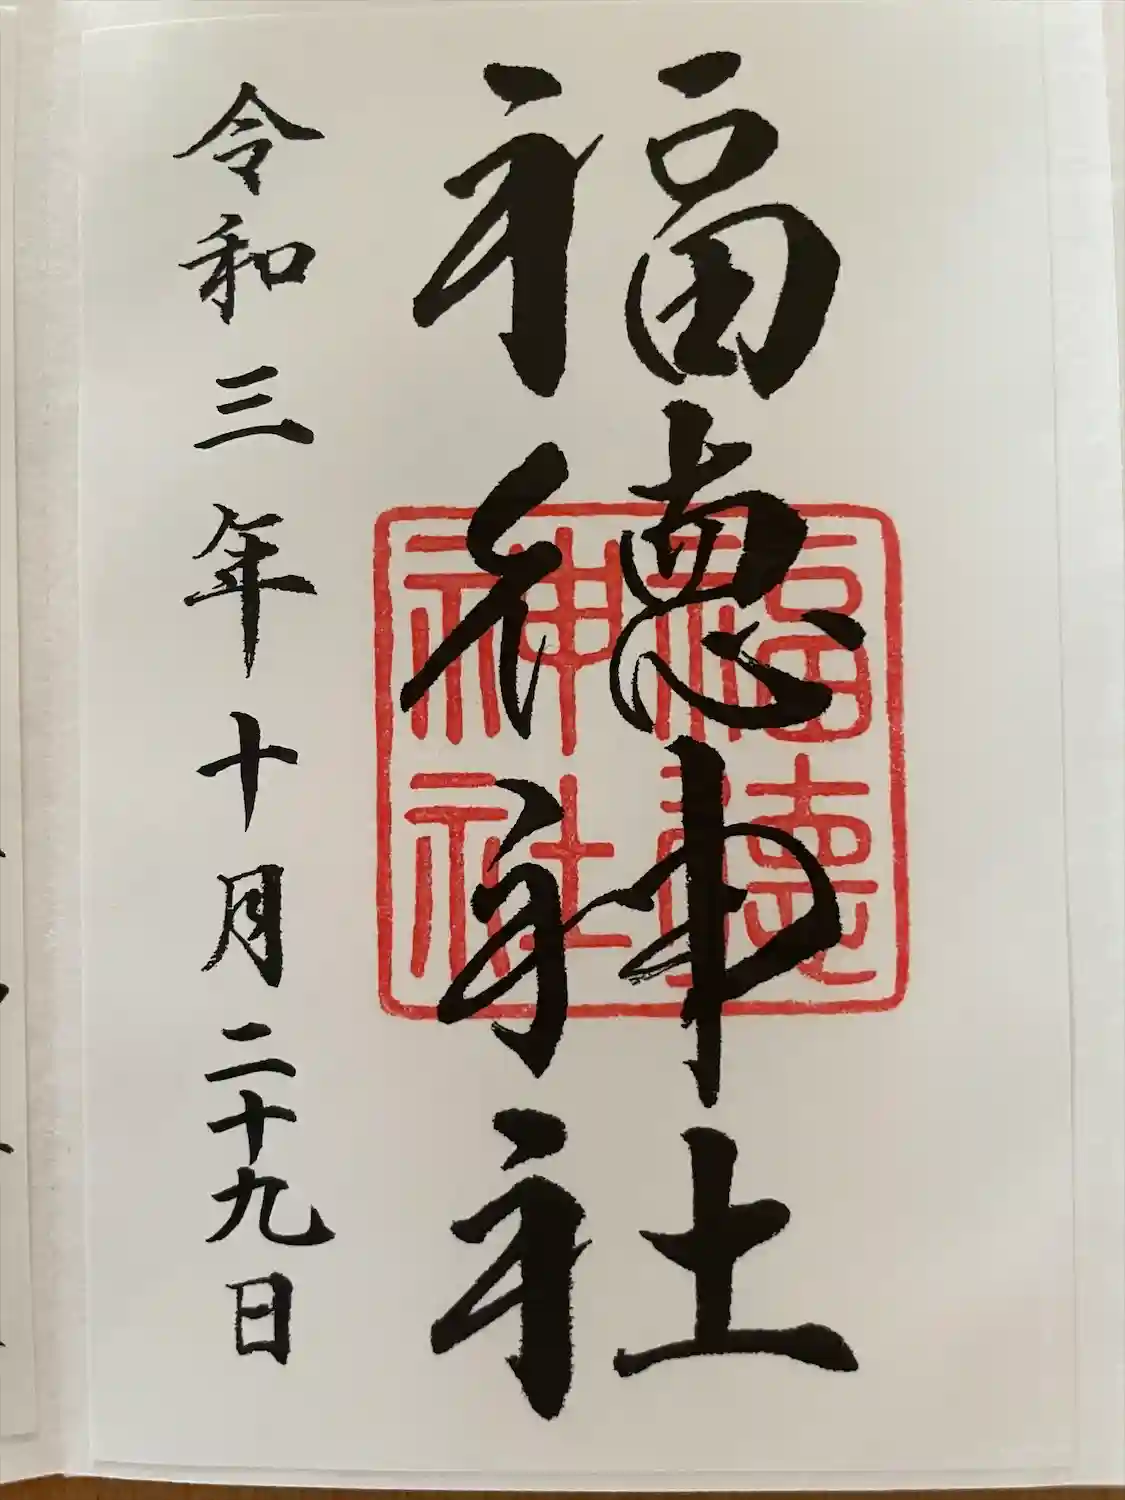 福徳神社
福徳神社
令和三年十月二十九日